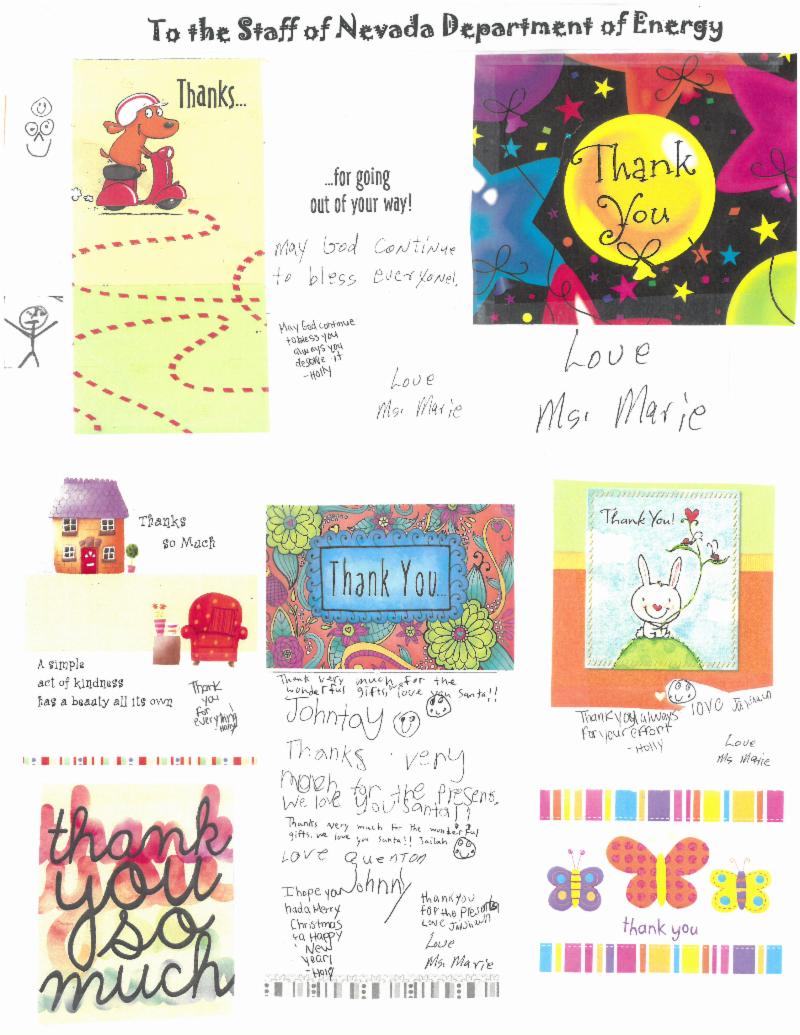 To the Staff of Nevada Department of Energy
Thanks...
...for going
out of your way!
May God continue
to bless everyone!
May God continue
to bless you
always you
deserve it
-Holly
Love
Ms. Marie
Thank
You
Love
Ms. Marie
Thanks
so Much
A simple
act of kindness
has a beauty all its own
Thank
you
for
everything!
Thank You...
Thank very much for the
wonderful gifts, we love you Santa!!
Johntay
Thanks very
much for the presents,
We love you Santa!!
Thanks very much for the wonderful
gifts, we love you Santa!! Jailah
Love Quenton
Johnny
I hope you
had a Merry
Christmas
+ a Happy
New
Year!
Holly
thank you
for the presents
Love Jahshawn
Love
Ms. Marie
Thank You!
love
Thank you always
for your effort
-Holly
Love
Ms. Marie
thank
you
so
much
thank you